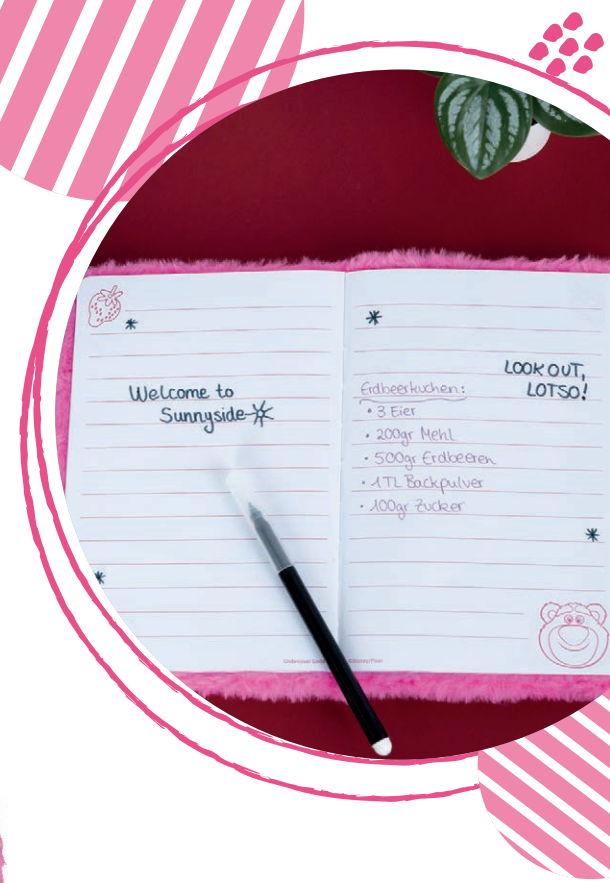 Welcome to
Sunnyside
LOOK OUT,
LOTSO!
Erdbeerkuchen:
• 3 Eier
• 200gr Mehl
• 500gr Erdbeeren
• 1TL Backpulver
• 100gr Zucker